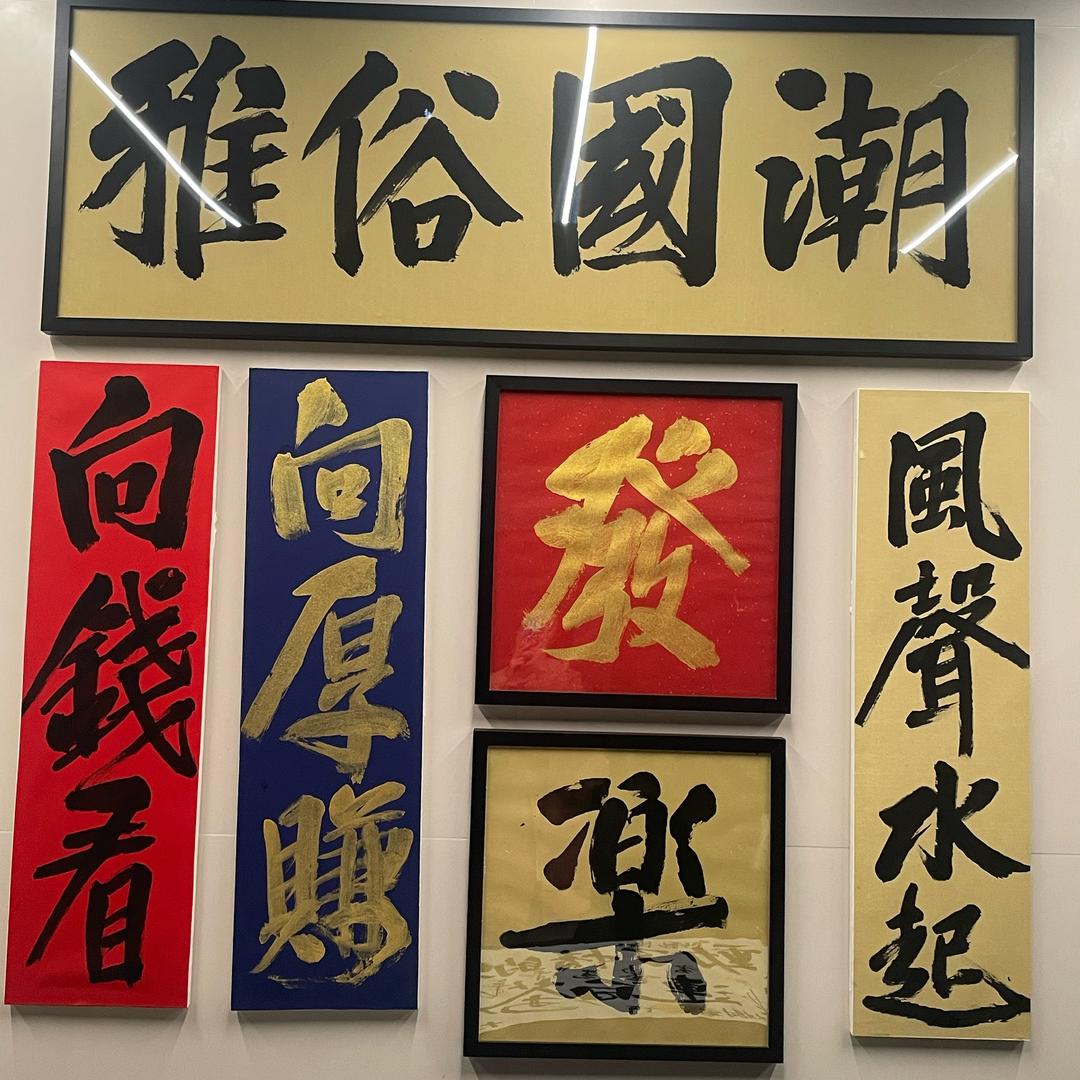 雅俗國潮
向錢看
向厚賺
發
樂
風聲水起